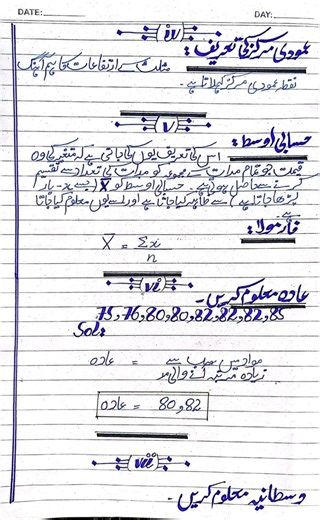 DATE: DAY:
(iv)
عمودی مرکز کی تعریف:
مثلث کے ارتفاعات کا ہم آہنگ
نقطہ عمودی مرکز کہلاتا ہے۔
(v)
حسابی اوسط:
اس کی تعریف یوں کی جاتی ہے کہ متغیر کی وہ
قیمت جو تمام مدات کے مجموعہ کو مدات کی تعداد سے تقسیم
کرنے سے حاصل ہوتی ہے۔ حسابی اوسط کو X̄ (جسے x-بار
پڑھا جاتا ہے) سے ظاہر کیا جاتا ہے اور اسے یوں معلوم کیا جاتا
ہے۔
فارمولا:
X̄ = Σx / n
(vi)
عادہ معلوم کریں۔
75,76,80,80,82,82,82,85
Sol:
عادہ = مواد میں سب سے
زیادہ مرتبہ آنے والی مد
عادہ = 80,82
(vii)
وسطانیہ معلوم کریں۔